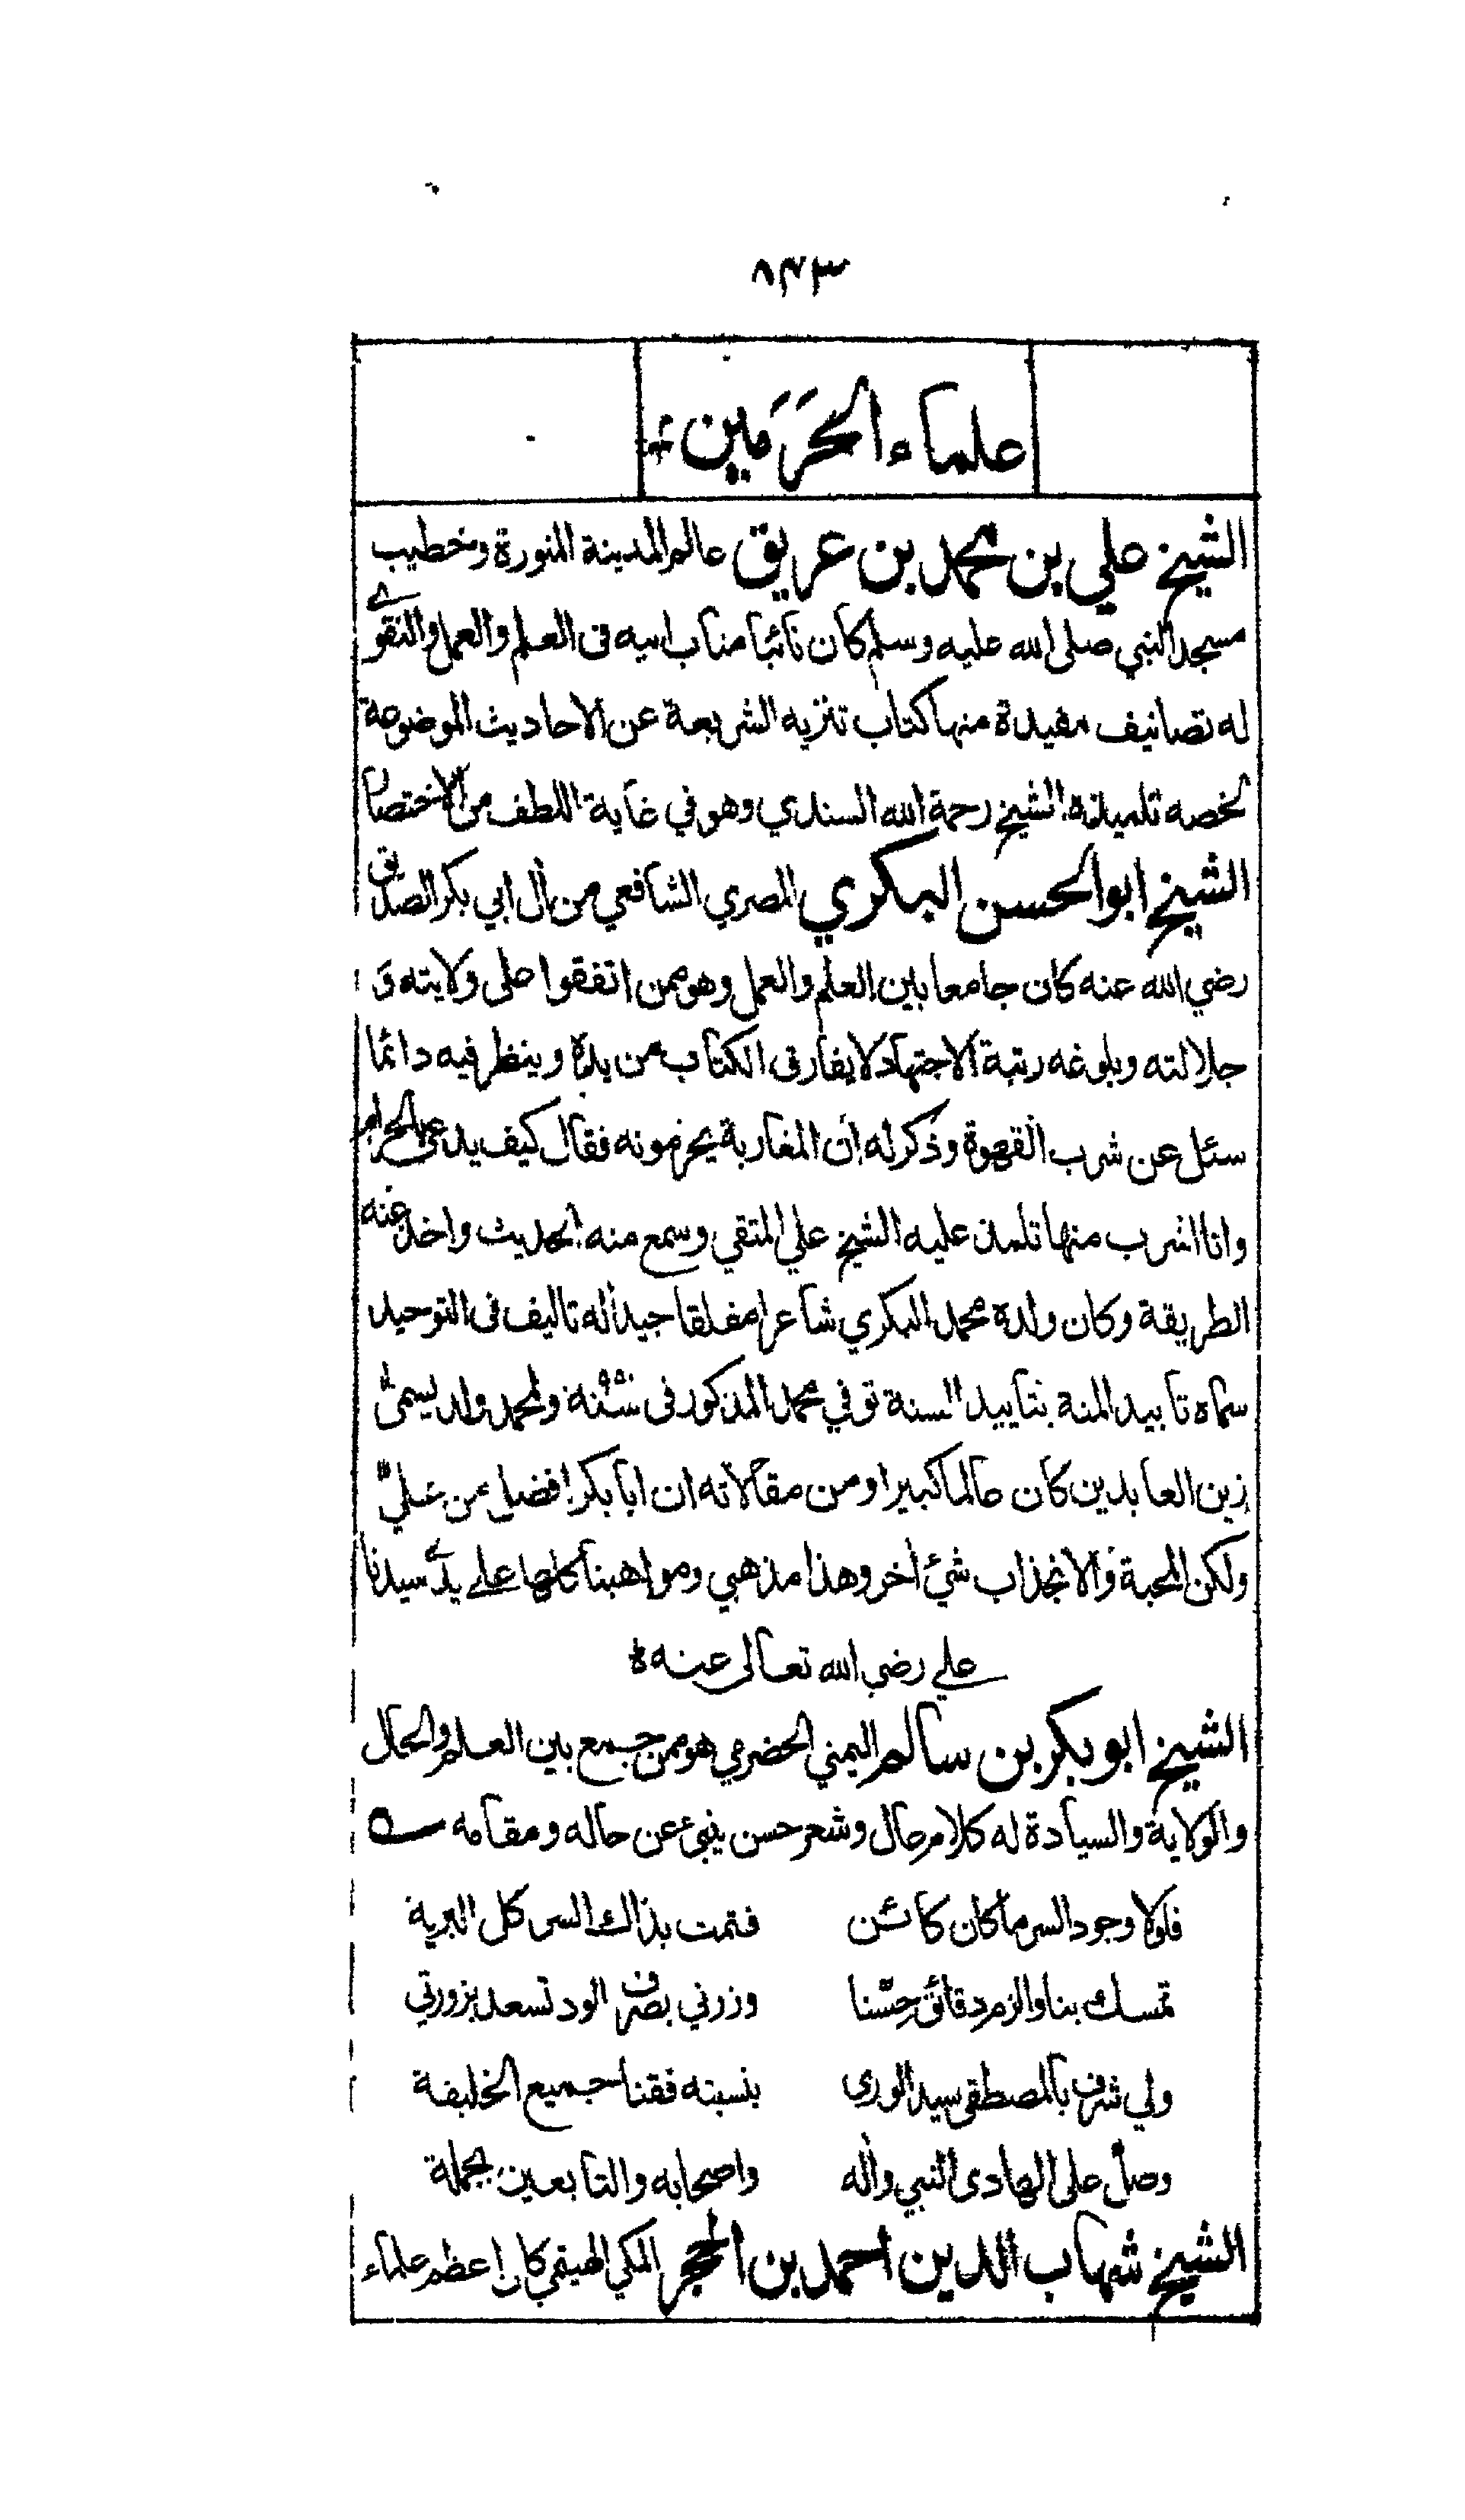 ٨٤٣
علماء الحَرَمين
الشيخ علي بن محمد بن عريق عالم المدينة المنورة وخطيب
مسجد النبي صلى الله عليه وسلم كان نائبا مناب ابيه فى العلم والعمل والتقوے
له تصانيف مفيدة منها كتاب تنزيه الشريعة عن الاحاديث الموضوعة
لخصه تلميذه الشيخ رحمة الله السندي وهو في غاية اللطف من الاختصار
الشيخ ابو الحسن البكري المصري الشافعي من أل ابي بكر الصديق
رضي الله عنه كان جامعا بين العلم والعمل وهو ممن اتفقوا على ولايته وَ
جلالته وبلوغه رتبة الاجتهاد لا يفارق الكتاب من يده وينظر فيه دائما
سئل عن شرب القهوة وذكر له ان المغاربة يحرمونه فقال كيف يدعى الحرام
وانا اشرب منها تلمذ عليه الشيخ علي المتقي وسمع منه الحديث واخذ عنه
الطريقة وكان ولده محمد البكري شاعرا مفلقا جيدا له تاليف فى التوحيد
سماه تابيد المنة بتاييد السنة توفي محمد المذكور فى سنة ولمحمد ولد يسمى
زين العابدين كان عالما كبيرا ومن مقالاته ان ابا بكر افضل من علي
ولكن المحبة والانجذاب شئ أخر وهذا مذهبي ومواهبنا كلها علے يدے سيدنا
علے رضي الله تعالى عنه
الشيخ ابو بكر بن سالم اليمني الحضرمي هو ممن جمع بين العلم والحال
والولاية والسيادة له كلام عال وشعر حسن ينبئ عن حاله ومقامه
فلولا وجود السر ما كان كائن فتمت بذاك السر كل البرية
تمسك بنا والزم دقائق حسّنا وزرني بصرف الود تسعد بزورتي
ولي شرف بالمصطفى سيد الورى بنسبته فقنا جميع الخليفة
وصل على الهادى النبي وأله واصحابه والتابعين بجملة
الشيخ شهاب الدين احمد بن الحجر المكي الهيقي كان اعظم علماء